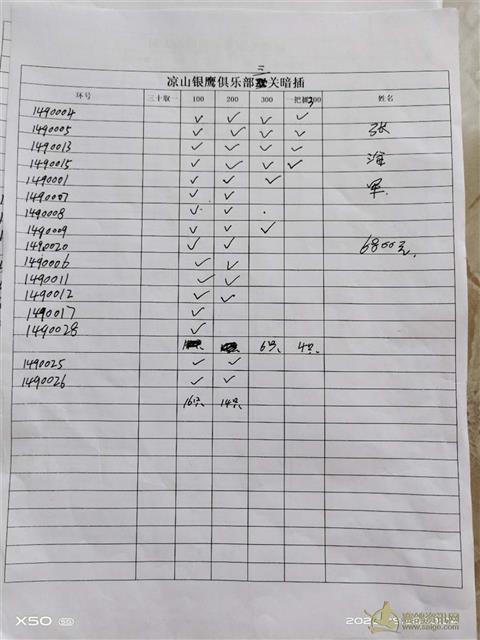 三
凉山银鹰俱乐部关暗插
环号 三十取一 100 200 300 一把抓300 姓名
1490004 ✓ ✓ ✓ ✓
1490005 ✓ ✓ ✓ ✓ 张
1490013 ✓ ✓ ✓ ✓
1490015 ✓ ✓ ✓ ✓ 淮
1490001 ✓ ✓ ✓
1490007 ✓ ✓ 军
1490008 ✓ ✓
1490009 ✓ ✓ ✓
1490020 ✓ ✓ 6800元
1490006 ✓ ✓
1490011 ✓ ✓
1490012 ✓ ✓
1490017 ✓
1490028 ✓
6只 4只
1490025 ✓ ✓
1490026 ✓ ✓
16只 14只
X50 5G
www.saige.com